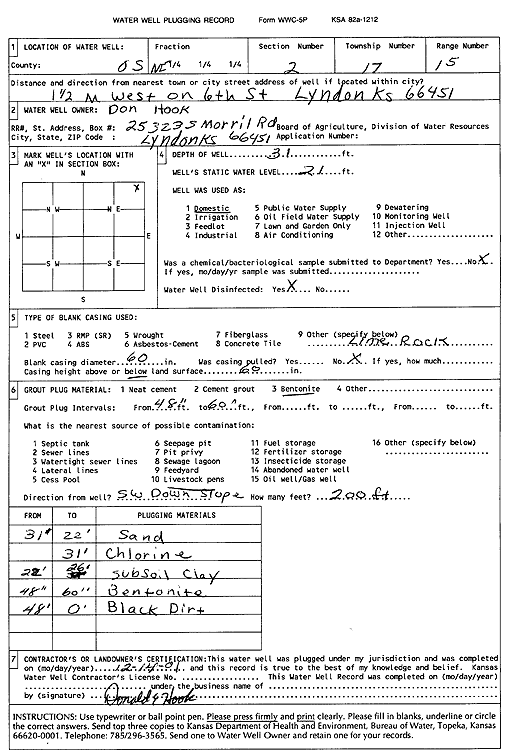 WATER WELL PLUGGING RECORD Form WWC-5P KSA 82a-1212
1 LOCATION OF WATER WELL: Fraction Section Number Township Number Range Number
County: OS NE 1/4 1/4 1/4 2 17 15
Distance and direction from nearest town or city street address of well if located within city?
1 1/2 M West on 6th St Lyndon Ks 66451
2 WATER WELL OWNER: Don Hook
RR#, St. Address, Box #: 25323 S Morril Rd Board of Agriculture, Division of Water Resources
City, State, ZIP Code : Lyndon Ks 66451 Application Number:
3 MARK WELL'S LOCATION WITH AN "X" IN SECTION BOX:
N
X
N W N E
W E
S W S E
S
4 DEPTH OF WELL.....31......ft.
WELL'S STATIC WATER LEVEL....21....ft.
WELL WAS USED AS:
1 Domestic 5 Public Water Supply 9 Dewatering
2 Irrigation 6 Oil Field Water Supply 10 Monitoring Well
3 Feedlot 7 Lawn and Garden Only 11 Injection Well
4 Industrial 8 Air Conditioning 12 Other................
Was a chemical/bacteriological sample submitted to Department? Yes....No.X..
If yes, mo/day/yr sample was submitted...................
Water Well Disinfected: Yes.X... No......
5 TYPE OF BLANK CASING USED:
1 Steel 3 RMP (SR) 5 Wrought 7 Fiberglass 9 Other (specify below)
2 PVC 4 ABS 6 Asbestos-Cement 8 Concrete Tile Lime Rock
Blank casing diameter..60......in. Was casing pulled? Yes...... No.X.. If yes, how much............
Casing height above or below land surface.....60.....in.
6 GROUT PLUG MATERIAL: 1 Neat cement 2 Cement grout 3 Bentonite 4 Other.........................
Grout Plug Intervals: From.48"ft. to 60"ft., From...... to ......ft., From...... to......ft.
What is the nearest source of possible contamination:
1 Septic tank 6 Seepage pit 11 Fuel storage 16 Other (specify below)
2 Sewer lines 7 Pit privy 12 Fertilizer storage
3 Watertight sewer lines 8 Sewage lagoon 13 Insecticide storage
4 Lateral lines 9 Feedyard 14 Abandoned water well
5 Cess Pool 10 Livestock pens 15 Oil well/Gas well
Direction from well? S.W. Down Slope How many feet? ...200 ft...
FROM TO PLUGGING MATERIALS
31' 22' Sand
31' Chlorine
22' 26' SubSoil Clay
48" 60" Bentonite
48' 0' Black Dirt
7 CONTRACTOR'S OR LANDOWNER'S CERTIFICATION: This water well was plugged under my jurisdiction and was completed
on (mo/day/year).....12-14-01... and this record is true to the best of my knowledge and belief. Kansas
Water Well Contractor's License No. .................. This Water Well Record was completed on (mo/day/year)
........................ under the business name of ..............................
by (signature) Donald G Hook
INSTRUCTIONS: Use typewriter or ball point pen. Please press firmly and print clearly. Please fill in blanks, underline or circle
the correct answers. Send top three copies to Kansas Department of Health and Environment, Bureau of Water, Topeka, Kansas
66620-0001. Telephone: 785/296-3565. Send one to Water Well Owner and retain one for your records.